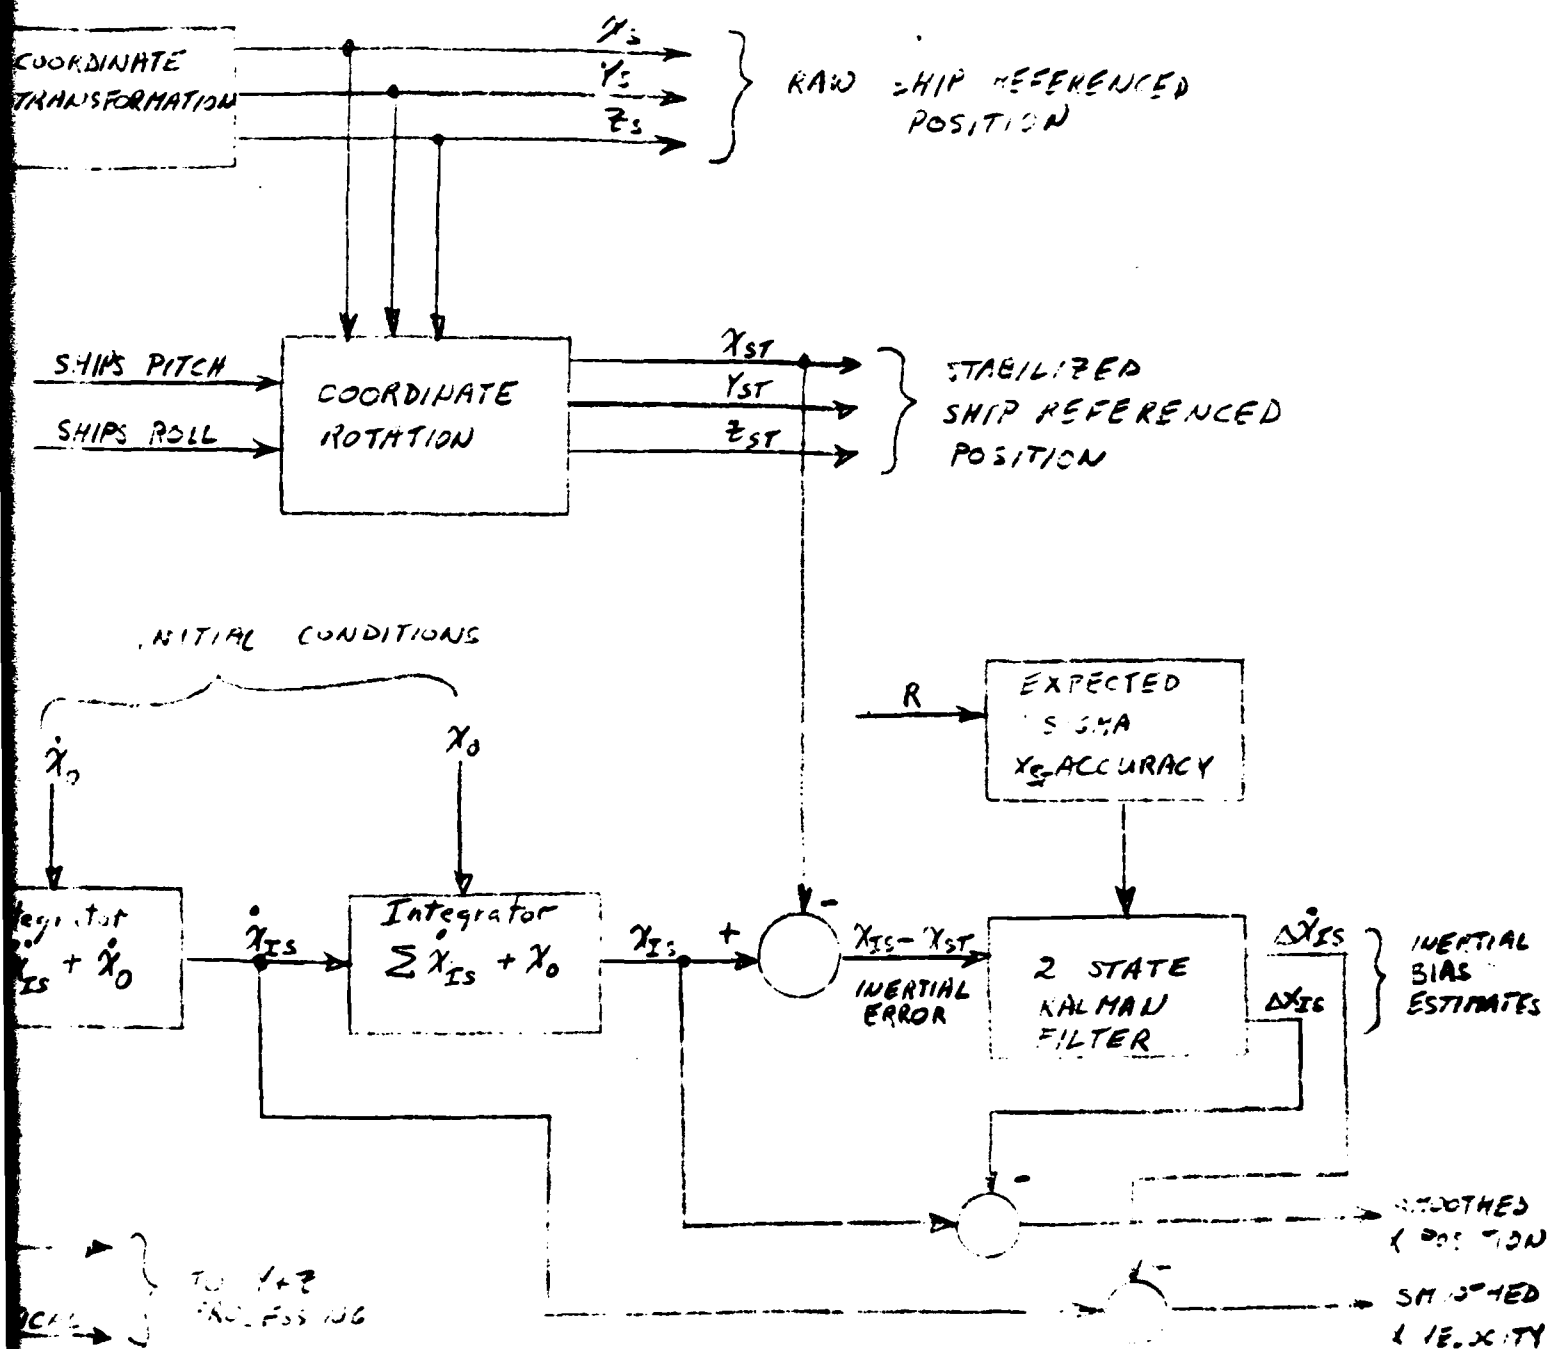 COORDINATE
TRANSFORMATION
X_S
Y_S
Z_S
RAW SHIP REFERENCED
POSITION
SHIPS PITCH
SHIPS ROLL
COORDINATE
ROTATION
X_ST
Y_ST
Z_ST
STABILIZED
SHIP REFERENCED
POSITION
INITIAL CONDITIONS
Ẋ_0
X_0
R
EXPECTED
SIGMA
X_ST ACCURACY
Ẋ_IS + Ẋ_0
Ẋ_IS
Integrator
Σ Ẋ_IS + X_0
X_IS
+
-
X_IS - X_ST
INERTIAL
ERROR
2 STATE
KALMAN
FILTER
ΔẊ_IS
ΔX_IS
INERTIAL
BIAS
ESTIMATES
-
SMOOTHED
X POSITION
-
SMOOTHED
X VELOCITY
TO Y+Z
PROCESSING